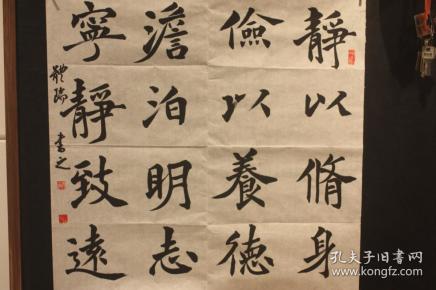 靜以脩身
儉以養德
澹泊明志
寧靜致遠
書之
孔夫子旧书网
www.kongfz.com